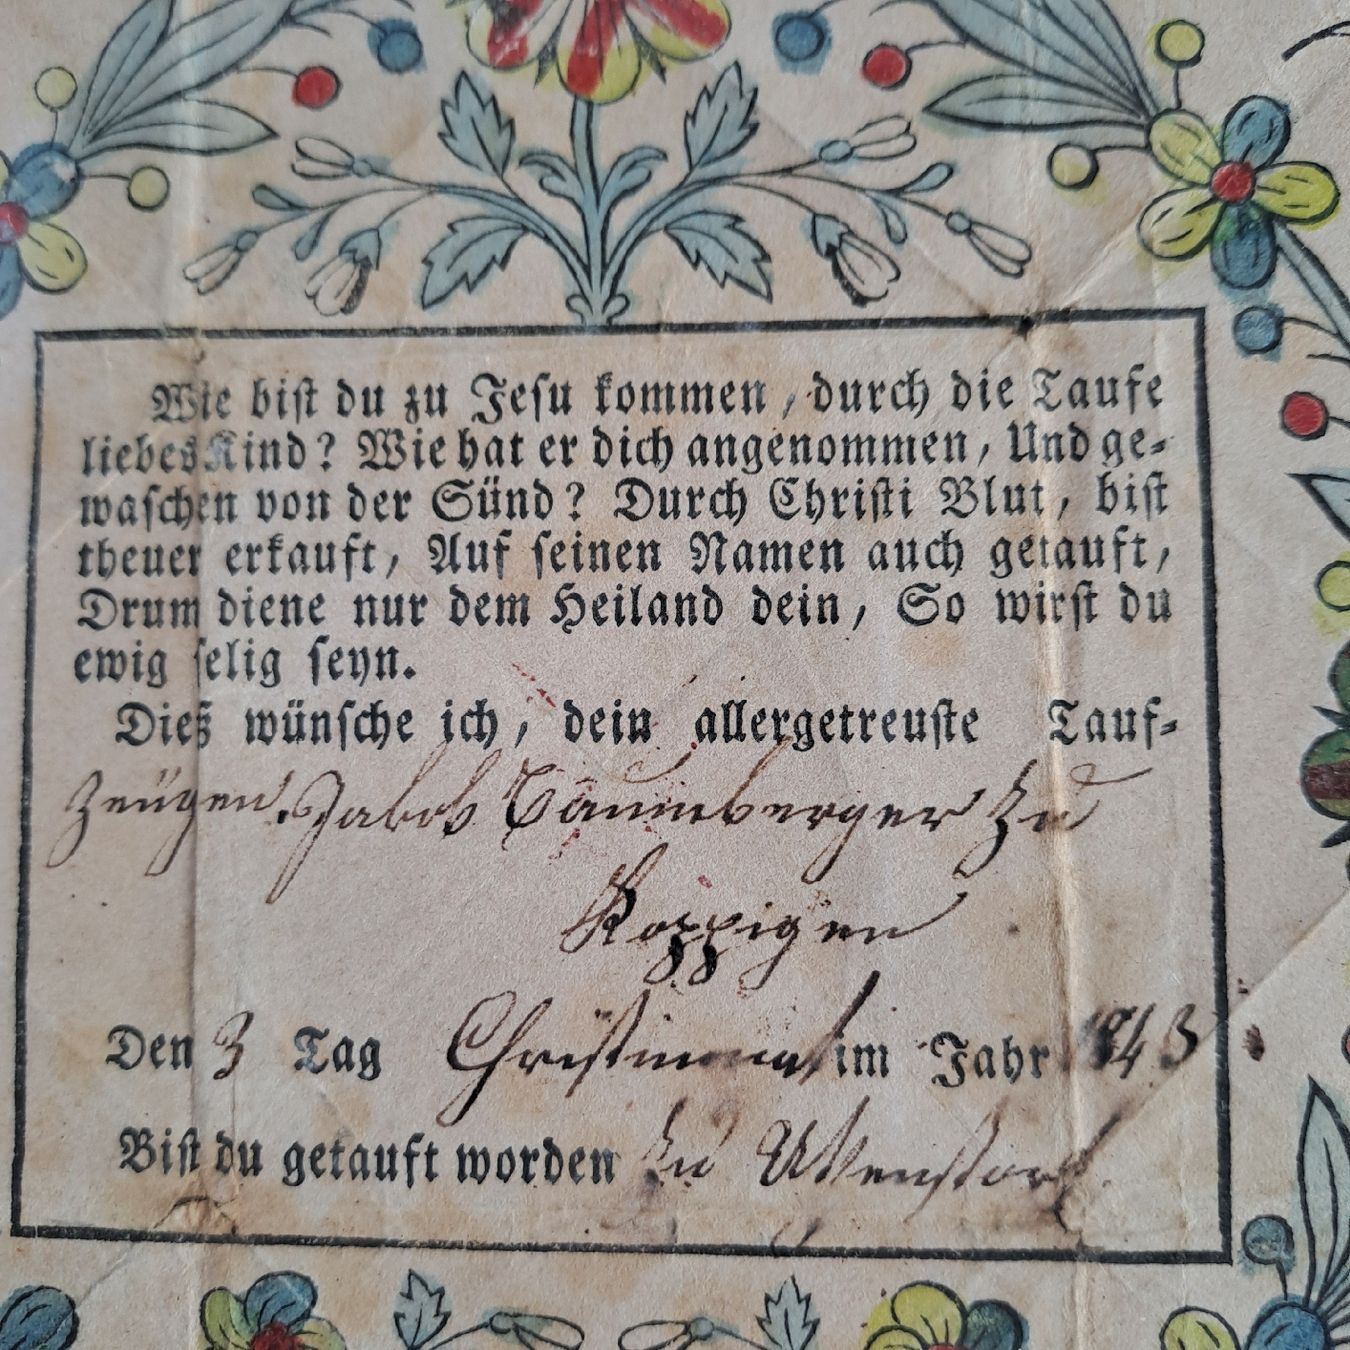 Wie bist du zu Jesu kommen, durch die Taufe
liebes Kind? Wie hat er dich angenommen, Und ge-
waschen von der Sünd? Durch Christi Blut, bist
theuer erkauft, Auf seinen Namen auch getauft,
Drum diene nur dem Heiland dein, So wirst du
ewig selig seyn.
Dieß wünsche ich, dein allergetreuste Tauf-
Zeügen. Jakob Baumberger zu
Koppigen
Den 3 Tag Christmonat im Jahr 1843
Bist du getauft worden zu Utzenstorf